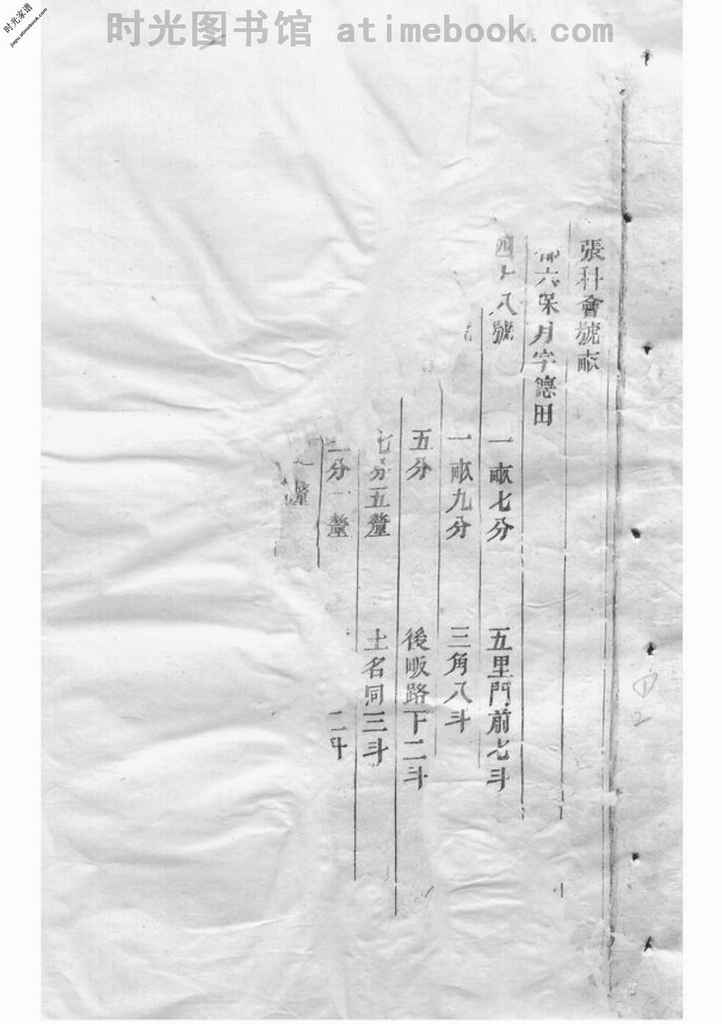 时光图书馆 atimebook.com
时光家谱
jiapu.atimebook.com
張科會號畝
六保月字德田
四十八號 一畝七分 五里門前七斗
一畝九分 三角八斗
五分 後畈路下二斗
七分五釐 土名同三斗
二分一釐 二斗
釐